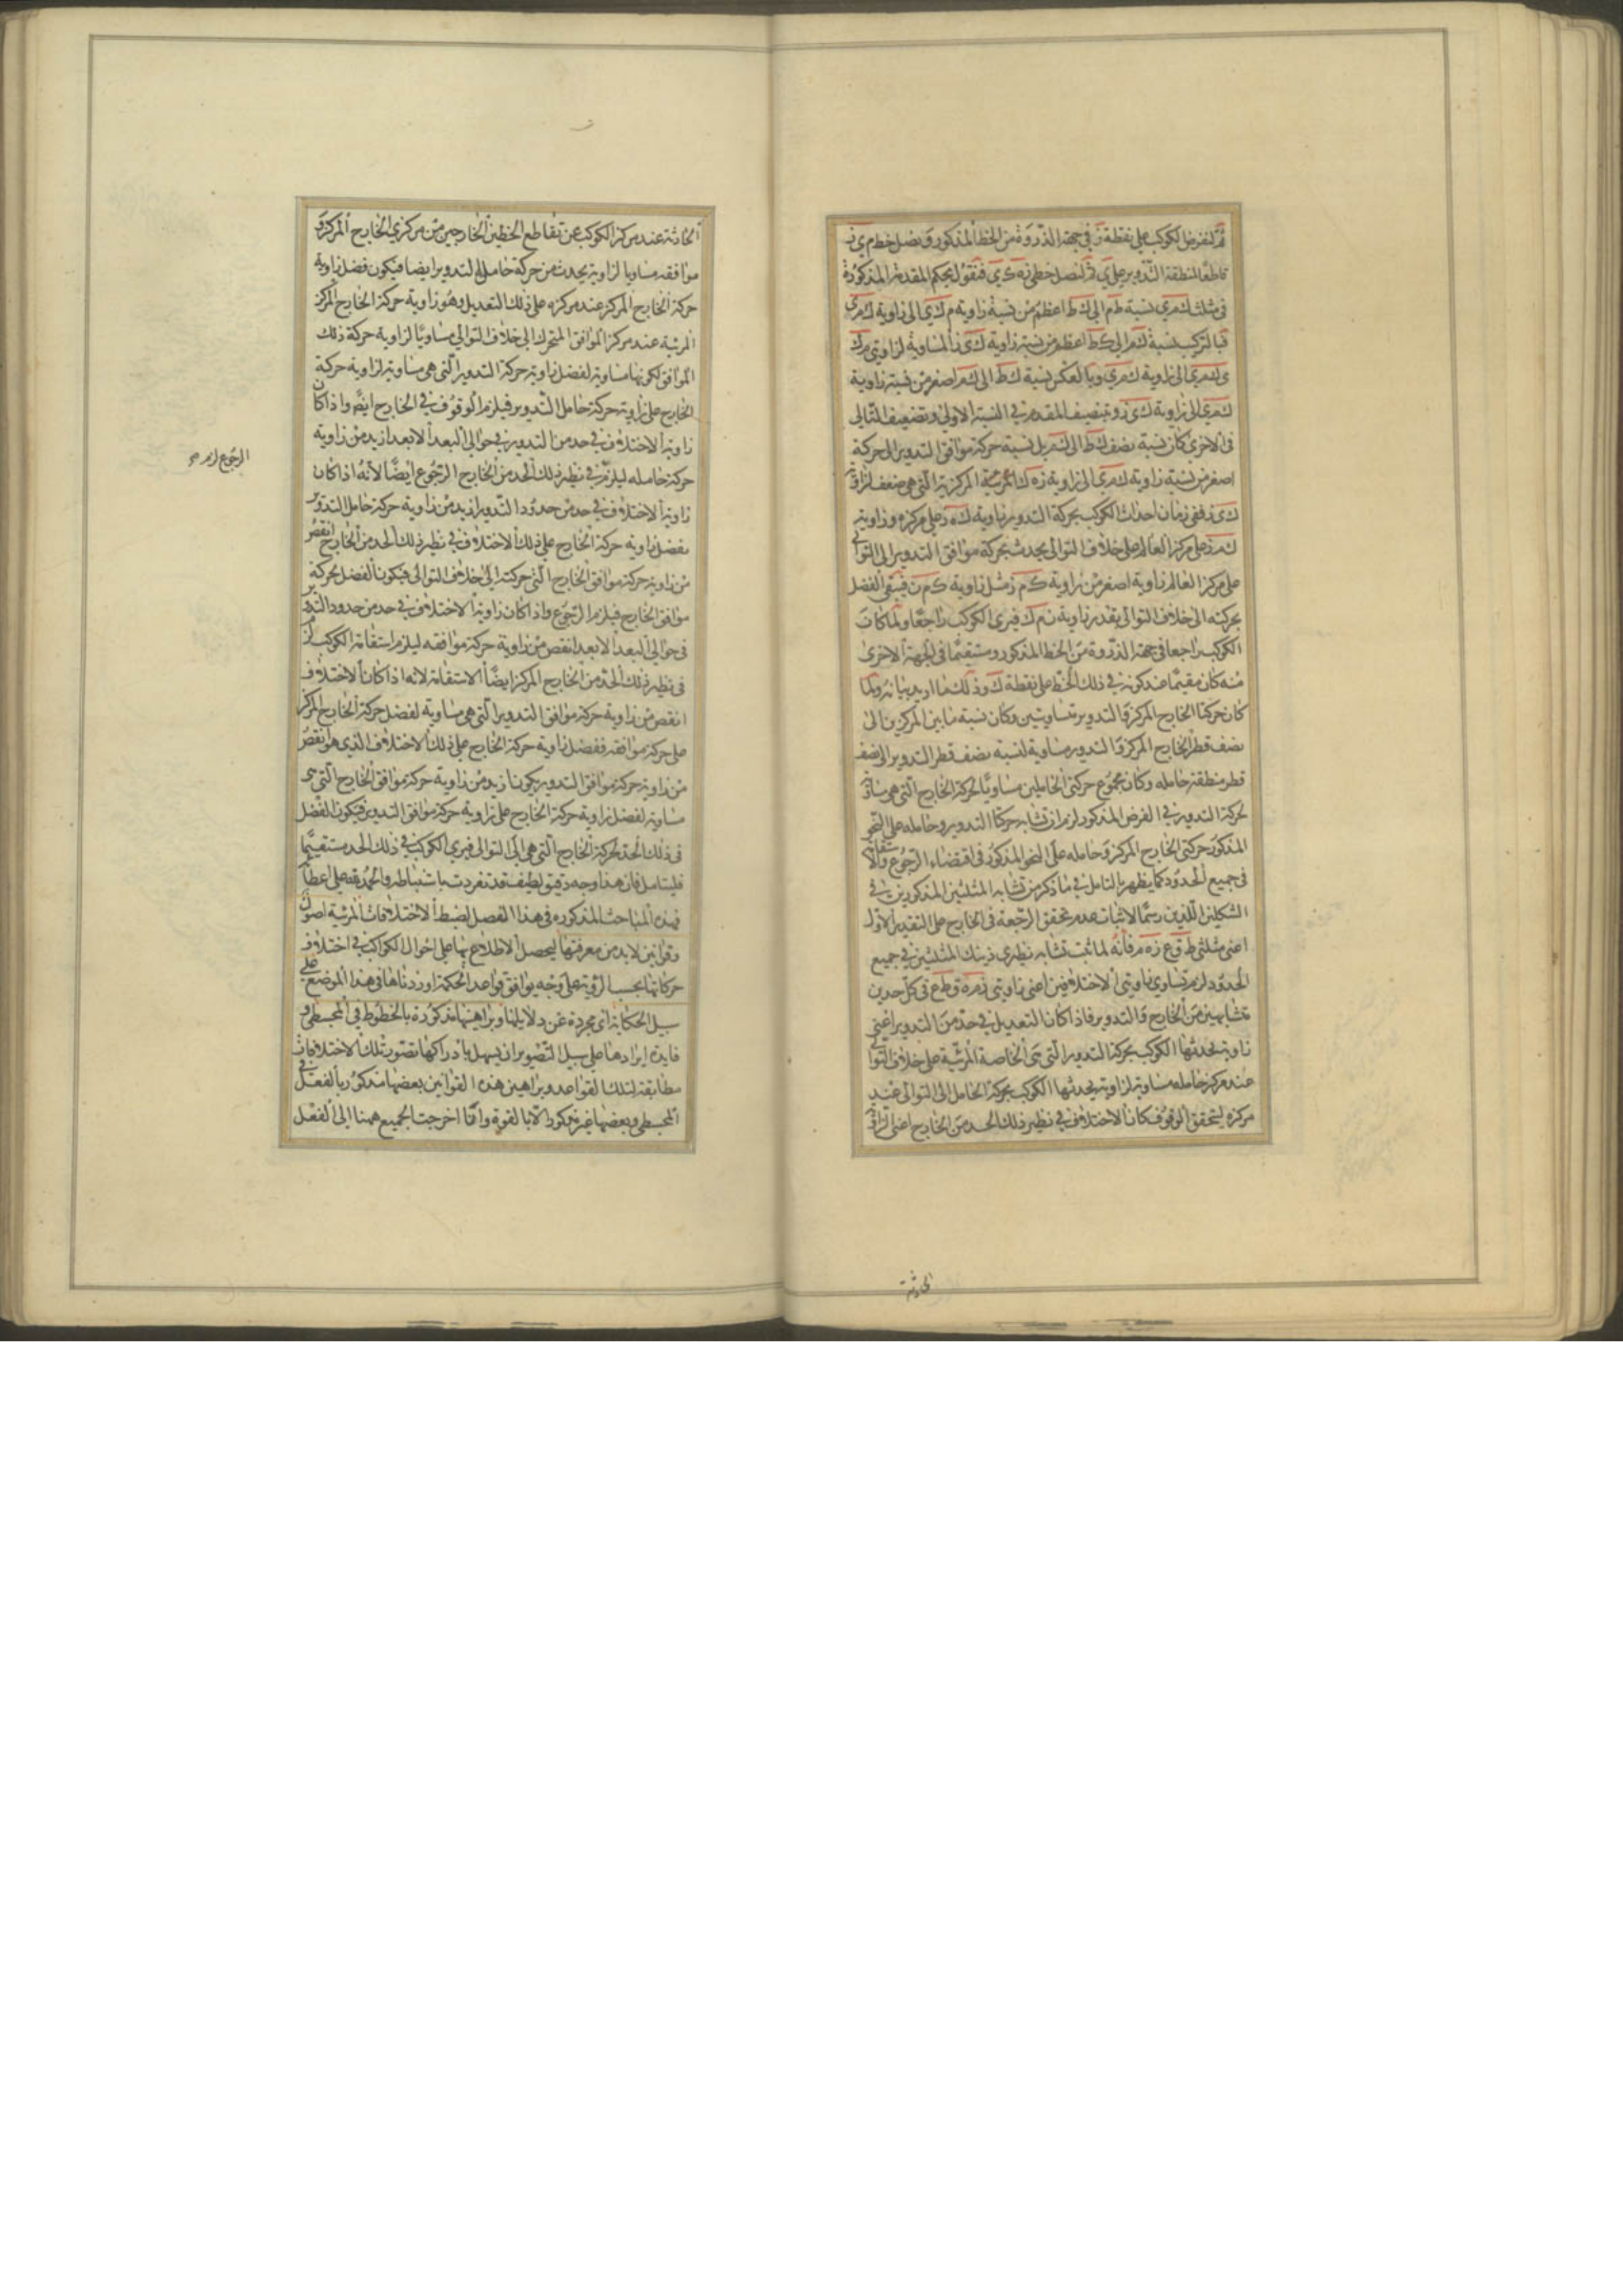 ثم لنفرض الكوكب على نقطة ز في جهة الذروة من الخط المذكور ونصل خط م ي ز
قاطعا لمنطقة التدوير على ي ثم لنصل خطي ز ه ك ي فنقول بحكم المقدمة المذكورة
في مثلث ك م ي نسبة ط م الى ك ط اعظم من نسبة زاوية م ك ي الى زاوية ك م ي
فبالتركيب نسبة ك م الى ك ط اعظم من نسبة زاوية ك ي ز المساوية لزاويتي م ك
ي ك م ي الى زاوية ك م ي وبالعكس نسبة ك ط الى ك م اصغر من نسبة زاوية
ك م ي الى زاوية ك ي ز وبتنصيف المقدم في النسبة الاولى وتضعيف التالي
في الاخرى كان نسبة نصف ك ط الى ك م بل نسبة حركة موافق التدوير الى حركة
اصغر من نسبة زاوية ك م ي الى زاوية ز ه ك المركزية التي هي ضعف لزاوية
ك ي ز ففي زمان احداث الكوكب بحركة التدوير زاوية ك ه ز على مركزه وزاوية
ك م ز على مركز العالم على خلاف التوالي يحدث بحركة موافق التدوير الى التوالي
على مركز العالم زاوية اصغر من زاوية ك م ز مثل زاوية ك م ن فيبقى الفضل
بحركته الى خلاف التوالي بقدر زاوية ن م ك فيرى الكوكب راجعا ولما كان
الكوكب راجعا في جهة الذروة من الخط المذكور ومستقيما في الجهة الاخرى
منه كان مقيما عند كونه في ذلك الخط على نقطة ك وذلك ما اريد بيانه ولما
كان حركتا الخارج المركز والتدوير متساويتين وكان نسبة ما بين المركزين الى
نصف قطر الخارج المركز والتدوير مساوية لنسبة نصف قطر التدوير الى نصف
قطر منطقة حامله وكان مجموع حركتي الحاملين مساويا لحركة الخارج التي هي مساوية
لحركة التدوير في الفرض المذكور لزم ان تشابه حركتا التدوير وحامله على النحو
المذكور حركتي الخارج المركز وحامله على النحو المذكور في اقتضاء الرجوع والاستقامة
في جميع الحدود كما يظهر بالتامل في ما ذكر من تشابه المثلثين المذكورين في
الشكلين اللذين رسما لاثبات عدم تحقق الرجعة في الخارج على التقدير الاول
اعني مثلثي ط ق ع ز ه م فانه لما ثبت تشابه نظيري ذينك المثلثين في جميع
الحدود لزم تساوي زاويتي الاختلافين اعني زاويتي ز م ه ق ط ع في كل حدين
متشابهين من الخارج والتدوير فاذا كان التعديل في حد من التدوير اعني
زاوية يحدثها الكوكب بحركة التدوير التي هي الخاصة المرئية على خلاف التوالي
عند مركز حامله مساوية لزاوية يحدثها الكوكب بحركة الحامل الى التوالي عند
مركزه ليتحقق الوقوف كان الاختلاف في نظير ذلك الحد من الخارج اعني الزاوية
الحادثة
الحادثة عند مركز الكوكب عن تقاطع الخطين الخارجين من مركزي الخارج المركز و
موافقه مساويا لزاوية يحدث من حركة حامل التدوير ايضا فيكون فضل زاوية
حركة الخارج المركز عند مركزه على ذلك التعديل وهو زاوية حركة الخارج المركز
المرئية عند مركز الموافق المتحرك الى خلاف التوالي مساويا لزاوية حركة ذلك
الموافق لكونها مساوية لفضل زاوية حركة التدوير التي هي مساوية لزاوية حركة
الخارج على زاوية حركة حامل التدوير فيلزم الوقوف في الخارج ايضا واذا كان
زاوية الاختلاف في حد من التدوير في حوالي البعد الابعد ازيد من زاوية
حركة حامله ليلزم في نظير ذلك الحد من الخارج الرجوع ايضا لانه اذا كان
زاوية الاختلاف في حد من حدود التدوير ازيد من زاوية حركة حامل التدوير
ففضل زاوية حركة الخارج على ذلك الاختلاف في نظير ذلك الحد من الخارج انقص
من زاوية حركة موافق الخارج التي حركته الى خلاف التوالي فيكون الفضل لحركة
موافق الخارج فيلزم الرجوع واذا كان زاوية الاختلاف في حد من حدود التدوير
في حوالي البعد الابعد انقص من زاوية حركة موافقه ليلزم استقامة الكوكب لزم
في نظير ذلك الحد من الخارج المركز ايضا الاستقامة لانه اذا كان الاختلاف
انقص من زاوية حركة موافق التدوير التي هي مساوية لفضل حركة الخارج المركز
على حركة موافقه ففضل زاوية حركة الخارج على ذلك الاختلاف الذي هو انقص
من زاوية حركة موافق التدوير يكون ازيد من زاوية حركة موافق الخارج التي هي
مساوية لفضل زاوية حركة الخارج على زاوية حركة موافق التدوير فيكون الفضل
في ذلك الحد لحركة الخارج التي هي الى التوالي فيرى الكوكب في ذلك الحد مستقيما
فليتامل فان هذا وجه دقيق لطيف قد تفردت باستنباطه والحمد لله على اعطائه
فهذه المباحث المذكورة في هذا الفصل لضبط الاختلافات المرئية اصول
وقوانين لا بد من معرفتها ليحصل الاطلاع بها على احوال الكواكب في اختلاف
حركاتها بحسب الرؤية على وجه يوافق قواعد الحكمة اوردناها في هذا الموضع على
سبيل الحكاية اي مجردة عن دلايلها وبراهينها مذكورة بالخطوط في المجسطي و
فايدة ايرادها على سبيل التصوير ان يسهل بادراكها تصور تلك الاختلافات
مطابقة لتلك القواعد وبراهين هذه القوانين بعضها مذكور بالفعل في
المجسطي وبعضها غير مذكور الا بالقوة وانا اخرجت الجميع ههنا الى الفعل